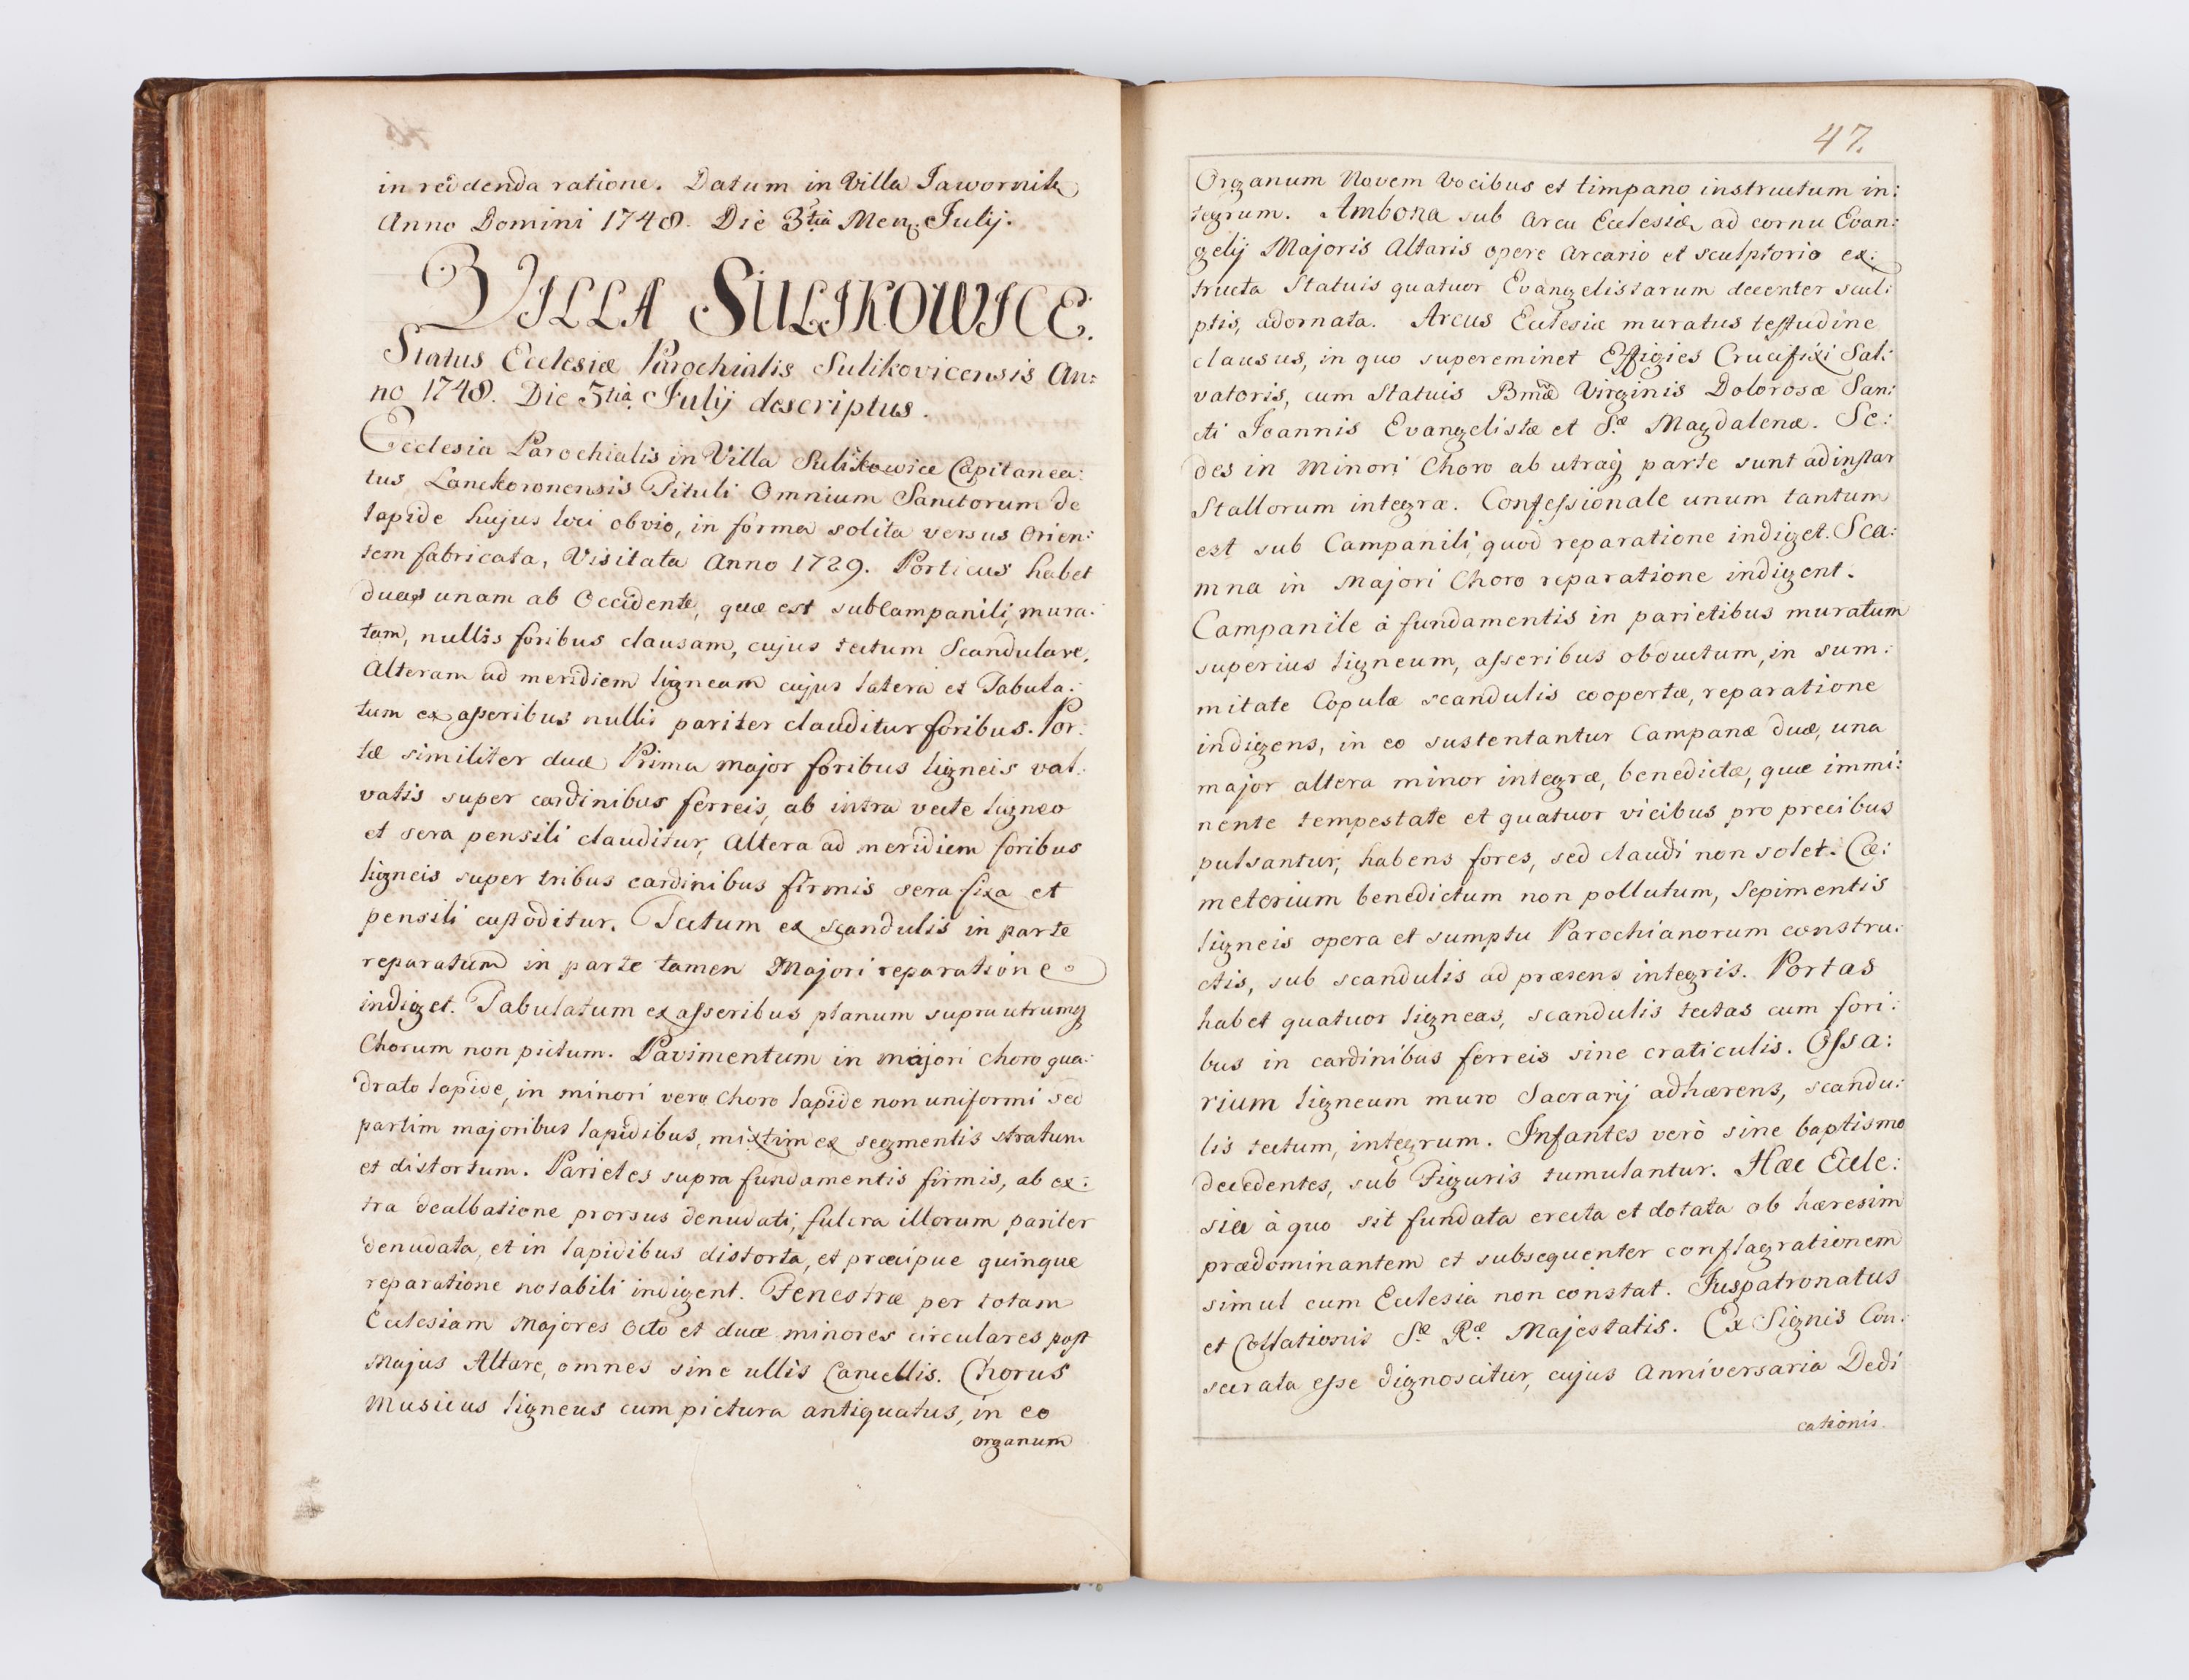 in reddenda ratione. Datum in Villa Jawornik
Anno Domini 1748. Die 3tia Men. Julij.
VILLA SULIKOWICE.
Status Ecclesiæ Parochialis Sulikovicensis An:
no 1748. Die 3tia Julij descriptus.
Ecclesia Parochialis in Villa Sulikowice Capitanea:
tus Lanckoronensis Tituli Omnium Sanctorum de
lapide hujus loci obvio, in forma solita versus Orien:
tem fabricata, Visitata Anno 1729. Porticus habet
duas unam ab Occidente, quæ est sub Campanili, mura:
tam, nullis foribus clausam, cujus tectum Scandulare,
Alteram ad meridiem ligneam cujus latera et Tabula:
tum ex asseribus nullis pariter clauditur foribus. Por:
tæ similiter duæ Prima major foribus ligneis val:
vatis super cardinibus ferreis, ab intra vecte ligneo
et sera pensili clauditur, Altera ad meridiem foribus
ligneis super tribus cardinibus firmis sera fixa et
pensili custoditur. Tectum ex scandulis in parte
reparatum in parte tamen Majori reparatione
indiget. Tabulatum ex asseribus planum supra utrumq
Chorum non pictum. Pavimentum in majori choro qua:
drato lapide, in minori vero Choro lapide non uniformi sed
partim majoribus lapidibus, mixtim ex segmentis stratum
et distortum. Parietes supra fundamentis firmis, ab ex:
tra dealbatione prorsus denudati, fulcra illorum pariter
denudata, et in lapidibus distorta, et præcipue quinque
reparatione notabili indigent. Fenestræ per totam
Ecclesiam Majores Octo et duæ minores circulares post
Majus Altare, omnes sine ullis Cancellis. Chorus
Musicus ligneus cum pictura antiquatus, in eo
organum
47.
Organum Novem Vocibus et timpano instructum in:
tegrum. Ambona sub Arcu Ecclesiæ, ad cornu Evan:
gelij Majoris Altaris opere Arcario et sculptorio ex:
tructa Statuis quatuor Evangelistarum decenter scul:
ptis, adornata. Arcus Ecclesiæ muratus testudine
clausus, in quo supereminet Effigies Crucifixi Sal:
vatoris, cum Statuis Bmæ Virginis Dolorosæ San:
cti Joannis Evangelistæ et Sæ Magdalenæ. Se:
des in Minori Choro ab utraq parte sunt ad instar
Stallorum integræ. Confessionale unum tantum
est sub Campanili, quod reparatione indiget. Sca:
mna in Majori Choro reparatione indigent.
Campanile à fundamentis in parietibus muratum
superius ligneum, asseribus obductum, in sum:
mitate Copulæ scandulis coopertæ, reparatione
indigens, in eo sustentantur Campanæ duæ, una
major altera minor integræ, benedictæ, quæ immi:
nente tempestate et quatuor vicibus pro precibus
pulsantur, habens fores, sed claudi non solet. Cæ:
meterium benedictum non pollutum, Sepimentis
ligneis opera et sumptu Parochianorum constru:
ctis, sub scandulis ad præsens integris. Portas
habet quatuor ligneas, scandulis tectas cum fori:
bus in cardinibus ferreis sine craticulis. Ossa:
rium ligneum muro Sacrarij adhærens, scandu:
lis tectum, integrum. Infantes verò sine baptismo
decedentes, sub Figuris tumulantur. Hæc Eccle:
sia à quo sit fundata erecta et dotata ob hæresim
prædominantem et subsequenter conflagrationem
simul cum Ecclesia non constat. Juspatronatus
et Collationis Sæ Ræ Majestatis. Ex Signis Con:
secrata esse dignoscitur, cujus Anniversaria Dedi
cationis